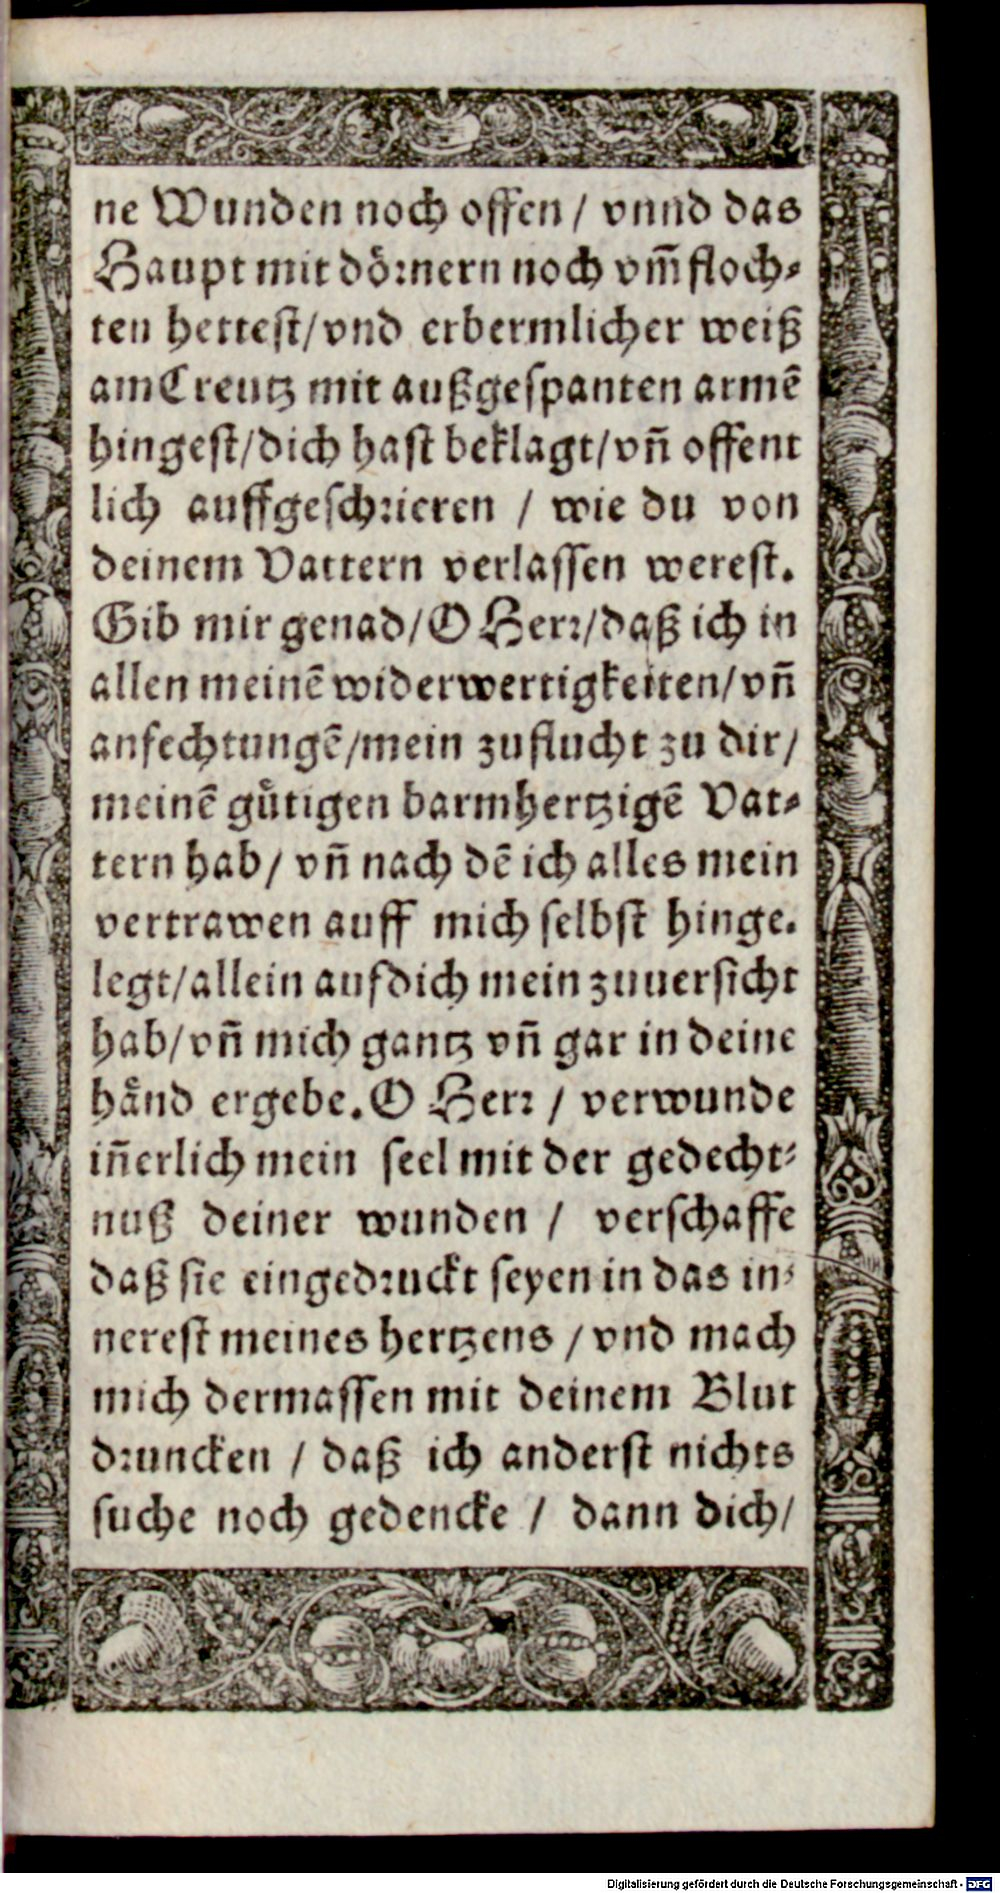 ne Wunden noch offen / vnnd das
Haupt mit dörnern noch vm̃ floch⸗
ten hettest/vnd erbermlicher weiß
am Creutz mit außgespanten armē
hingest/dich hast beklagt/vñ offent
lich auffgeschrieren / wie du von
deinem Vattern verlassen werest.
Gib mir genad/O Herr/daß ich in
allen meinē widerwertigkeiten/vñ
anfechtungē/mein zuflucht zu dir/
meinē gütigen barmhertzigē Vat⸗
tern hab/ vñ nach dē ich alles mein
vertrawen auff mich selbst hinge.
legt/allein auf dich mein zuuersicht
hab/vñ mich gantz vñ gar in deine
händ ergebe. O Herr / verwunde
iñerlich mein seel mit der gedecht⸗
nuß deiner wunden / verschaffe
daß sie eingedruckt seyen in das in⸗
nerest meines hertzens / vnd mach
mich dermassen mit deinem Blut
druncken / daß ich anderst nichts
suche noch gedencke / dann dich/
Digitalisierung gefördert durch die Deutsche Forschungsgemeinschaft - DFG